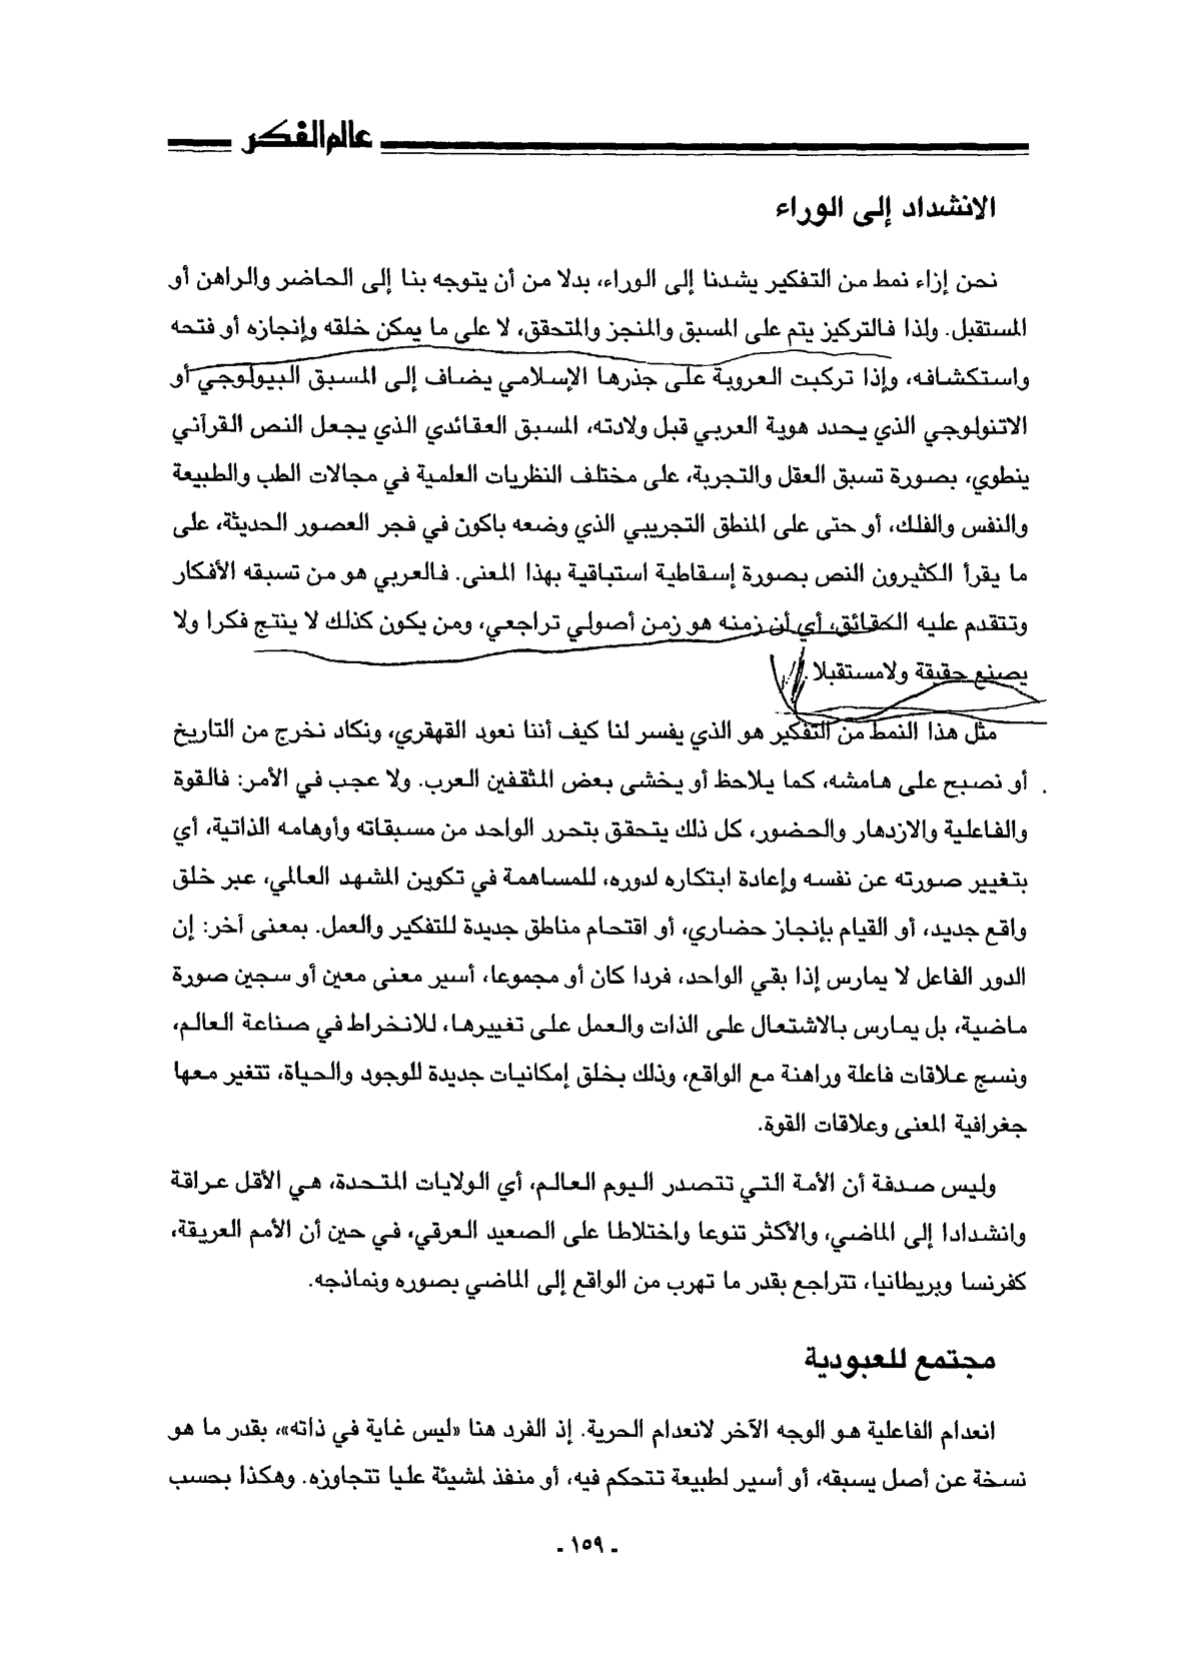 عالم الفكر
الانشداد إلى الوراء
نحن إزاء نمط من التفكير يشدنا إلى الوراء، بدلا من أن يتوجه بنا إلى الحاضر والراهن أو
المستقبل. ولذا فالتركيز يتم على المسبق والمنجز والمتحقق، لا على ما يمكن خلقه وإنجازه أو فتحه
واستكشافه، وإذا تركبت العروبة على جذرها الإسلامي يضاف إلى المسبق البيولوجي أو
الاتنولوجي الذي يحدد هوية العربي قبل ولادته، المسبق العقائدي الذي يجعل النص القرآني
ينطوي، بصورة تسبق العقل والتجربة، على مختلف النظريات العلمية في مجالات الطب والطبيعة
والنفس والفلك، أو حتى على المنطق التجريبي الذي وضعه باكون في فجر العصور الحديثة، على
ما يقرأ الكثيرون النص بصورة إسقاطية استباقية بهذا المعنى. فالعربي هو من تسبقه الأفكار
وتتقدم عليه الحقائق، أي أن زمنه هو زمن أصولي تراجعي، ومن يكون كذلك لا ينتج فكرا ولا
يصنع حقيقة ولامستقبلا.
مثل هذا النمط من التفكير هو الذي يفسر لنا كيف أننا نعود القهقري، ونكاد نخرج من التاريخ
أو نصبح على هامشه، كما يلاحظ أو يخشى بعض المثقفين العرب. ولا عجب في الأمر: فالقوة
والفاعلية والازدهار والحضور، كل ذلك يتحقق بتحرر الواحد من مسبقاته وأوهامه الذاتية، أي
بتغيير صورته عن نفسه وإعادة ابتكاره لدوره، للمساهمة في تكوين المشهد العالمي، عبر خلق
واقع جديد، أو القيام بإنجاز حضاري، أو اقتحام مناطق جديدة للتفكير والعمل. بمعنى آخر: إن
الدور الفاعل لا يمارس إذا بقي الواحد، فردا كان أو مجموعا، أسير معنى معين أو سجين صورة
ماضية، بل يمارس بالاشتعال على الذات والعمل على تغييرها، للانخراط في صناعة العالم،
ونسج علاقات فاعلة وراهنة مع الواقع، وذلك بخلق إمكانيات جديدة للوجود والحياة، تتغير معها
جغرافية المعنى وعلاقات القوة.
وليس صدفة أن الأمة التي تتصدر اليوم العالم، أي الولايات المتحدة، هي الأقل عراقة
وانشدادا إلى الماضي، والأكثر تنوعا واختلاطا على الصعيد العرقي، في حين أن الأمم العريقة،
كفرنسا وبريطانيا، تتراجع بقدر ما تهرب من الواقع إلى الماضي بصوره ونماذجه.
مجتمع للعبودية
انعدام الفاعلية هو الوجه الآخر لانعدام الحرية. إذ الفرد هنا «ليس غاية في ذاته»، بقدر ما هو
نسخة عن أصل يسبقه، أو أسير لطبيعة تتحكم فيه، أو منفذ لمشيئة عليا تتجاوزه. وهكذا بحسب
- ١٥٩ -